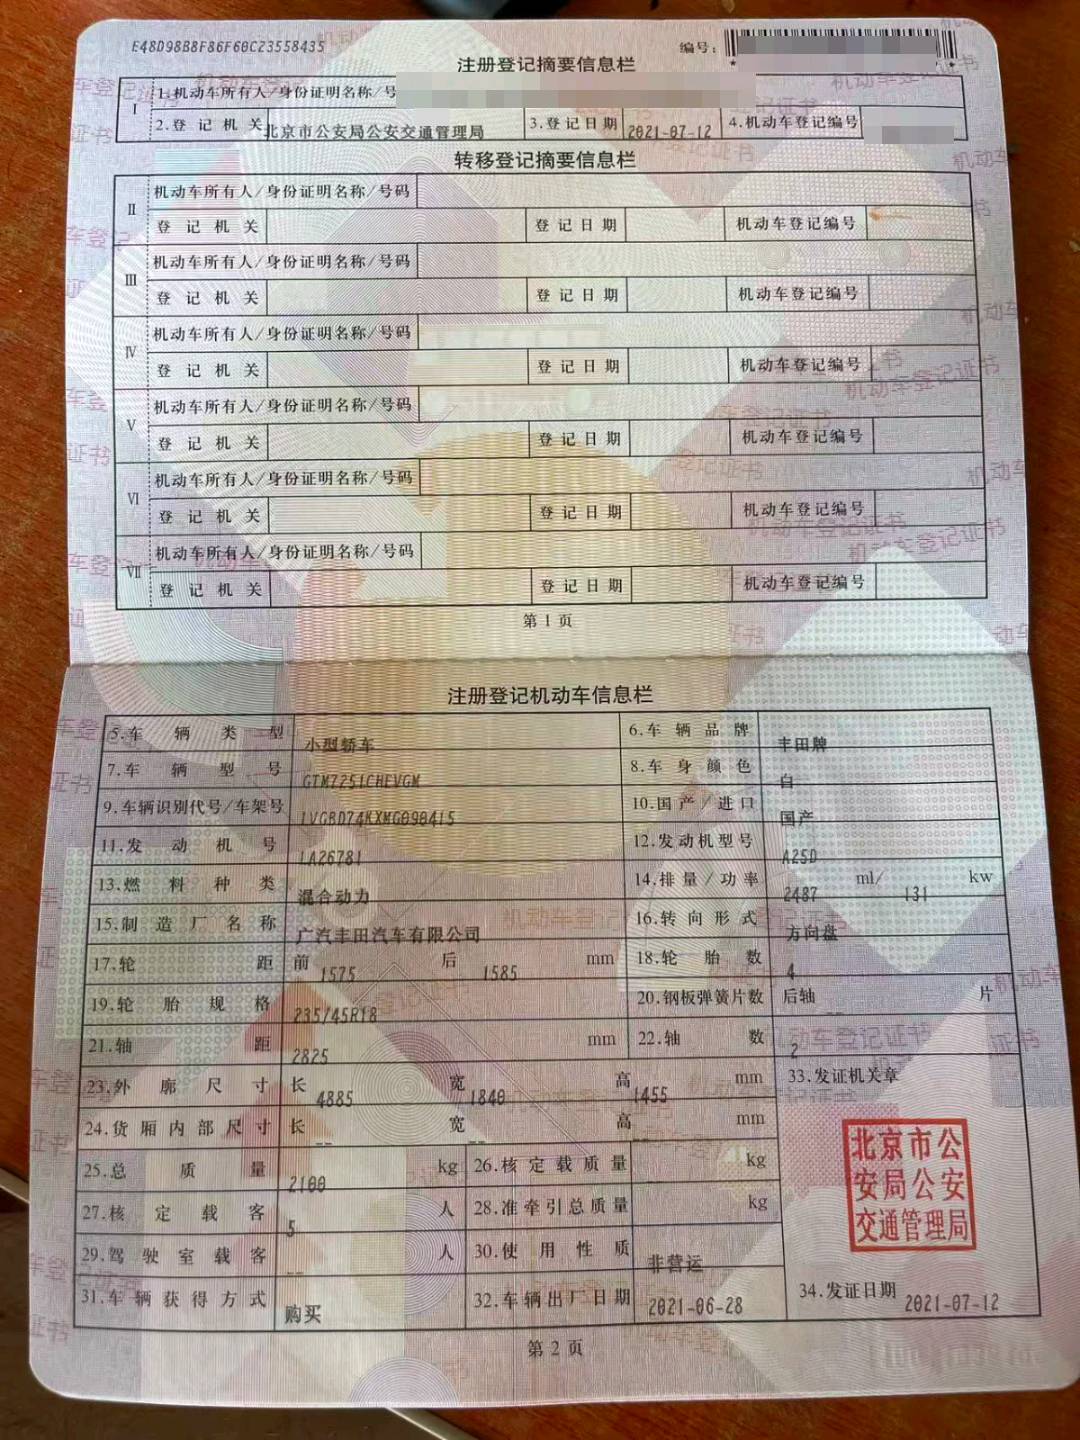 E48D98B8F86F60C23558435
编号:
注册登记摘要信息栏
I
1.机动车所有人/身份证明名称/号
2.登记机关 北京市公安局公安交通管理局 3.登记日期 2021-07-12 4.机动车登记编号
转移登记摘要信息栏
II
机动车所有人/身份证明名称/号码
登记机关 登记日期 机动车登记编号
III
机动车所有人/身份证明名称/号码
登记机关 登记日期 机动车登记编号
IV
机动车所有人/身份证明名称/号码
登记机关 登记日期 机动车登记编号
V
机动车所有人/身份证明名称/号码
登记机关 登记日期 机动车登记编号
VI
机动车所有人/身份证明名称/号码
登记机关 登记日期 机动车登记编号
VII
机动车所有人/身份证明名称/号码
登记机关 登记日期 机动车登记编号
第1页
注册登记机动车信息栏
5.车辆类型 小型轿车 6.车辆品牌 丰田牌
7.车辆型号 GTM7251CHEVGM 8.车身颜色 白
9.车辆识别代号/车架号 LVGBD74KXMG090415 10.国产/进口 国产
11.发动机号 LA26781 12.发动机型号 A25D
13.燃料种类 混合动力 14.排量/功率 2487 ml/ 131 kw
15.制造厂名称 广汽丰田汽车有限公司 16.转向形式 方向盘
17.轮距 前 1575 后 1585 mm 18.轮胎数 4
19.轮胎规格 235/45R18 20.钢板弹簧片数 后轴 -- 片
21.轴距 2825 mm 22.轴数 2
23.外廓尺寸 长 4885 宽 1840 高 1455 mm 33.发证机关章
24.货厢内部尺寸 长 -- 宽 -- 高 -- mm
25.总质量 2100 kg 26.核定载质量 -- kg
27.核定载客 5 人 28.准牵引总质量 -- kg
29.驾驶室载客 -- 人 30.使用性质 非营运
31.车辆获得方式 购买 32.车辆出厂日期 2021-06-28 34.发证日期 2021-07-12
北京市公
安局公安
交通管理局
第2页